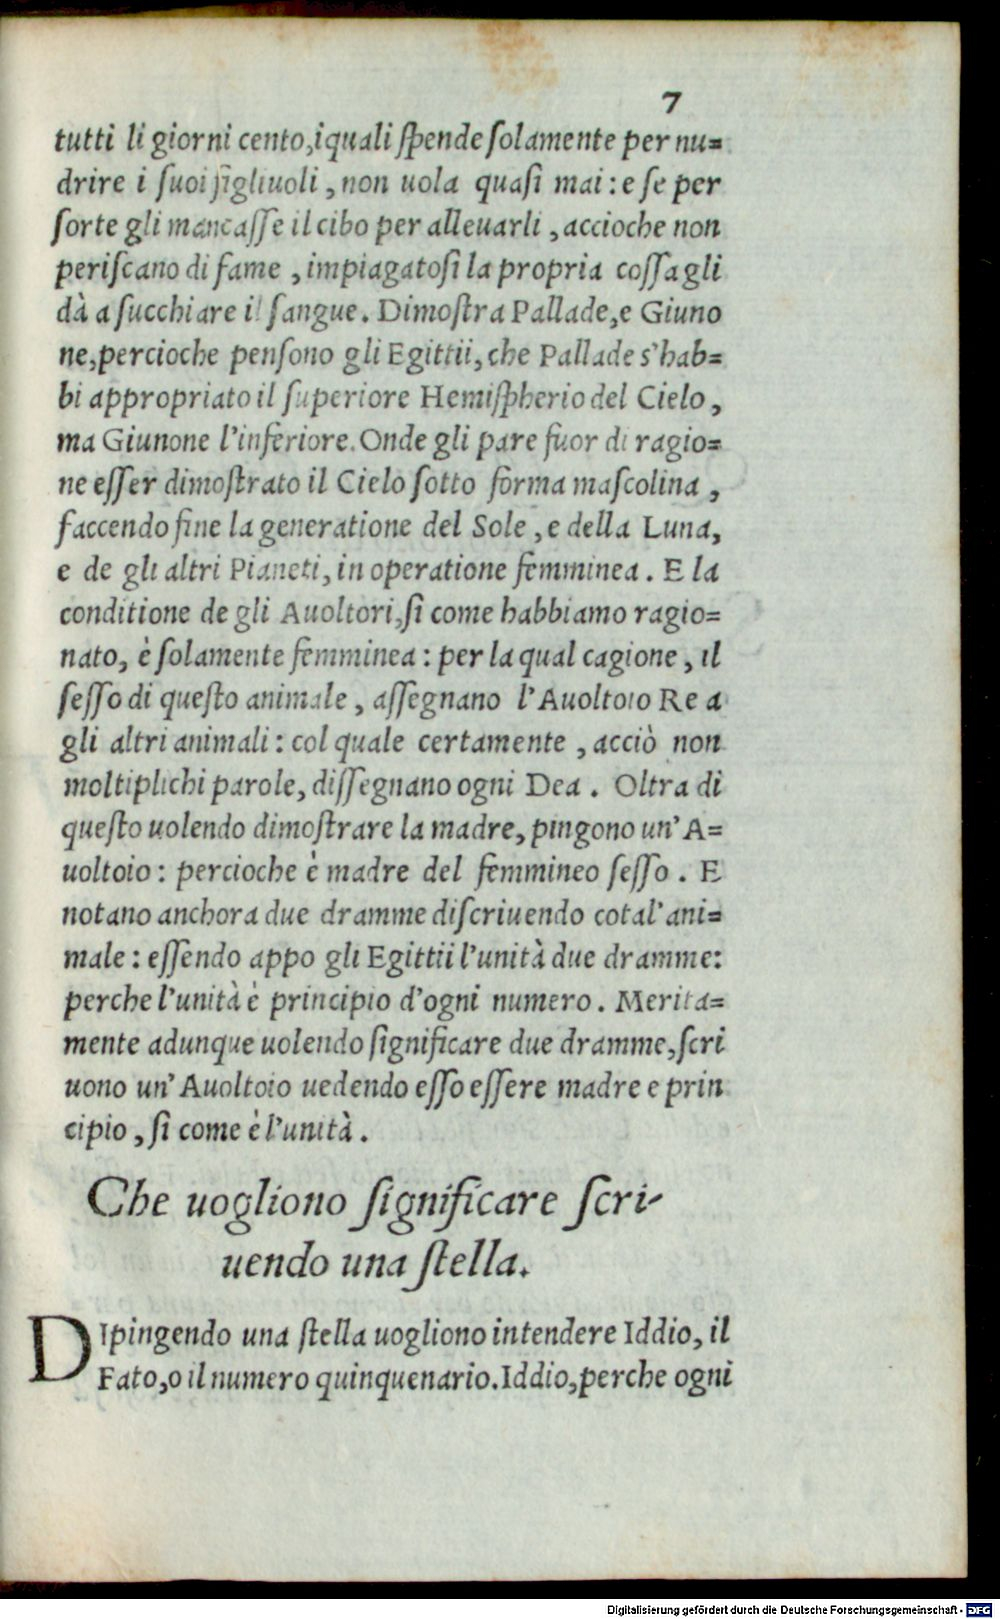 7
tutti li giorni cento, i quali ſpende ſolamente per nu=
drire i ſuoi figliuoli, non uola quaſi mai: e ſe per
ſorte gli mancaſſe il cibo per alleuarli, accioche non
periſcano di fame, impiagatoſi la propria coſſa gli
dà a ſucchiare il ſangue. Dimoſtra Pallade, e Giuno
ne, percioche penſono gli Egittii, che Pallade s'hab=
bi appropriato il ſuperiore Hemiſpherio del Cielo,
ma Giunone l'inferiore. Onde gli pare fuor di ragio=
ne eſſer dimoſtrato il Cielo ſotto forma maſcolina,
faccendo fine la generatione del Sole, e della Luna,
e de gli altri Pianeti, in operatione femminea. E la
conditione de gli Auoltori, ſi come habbiamo ragio=
nato, è ſolamente femminea: per la qual cagione, il
ſeſſo di queſto animale, aſſegnano l'Auoltoio Re a
gli altri animali: col quale certamente, acciò non
moltiplichi parole, diſſegnano ogni Dea. Oltra di
queſto uolendo dimoſtrare la madre, pingono un'A=
uoltoio: percioche è madre del femmineo ſeſſo. E
notano anchora due dramme diſcriuendo cotal'ani=
male: eſſendo appo gli Egittii l'unità due dramme:
perche l'unità è principio d'ogni numero. Merita=
mente adunque uolendo ſignificare due dramme, ſcri
uono un'Auoltoio uedendo eſſo eſſere madre e prin
cipio, ſi come è l'unità.
Che uogliono ſignificare ſcri-
uendo una ſtella.
DIpingendo una ſtella uogliono intendere Iddio, il
Fato, o il numero quinquenario. Iddio, perche ogni
Digitalisierung gefördert durch die Deutsche Forschungsgemeinschaft - DFG